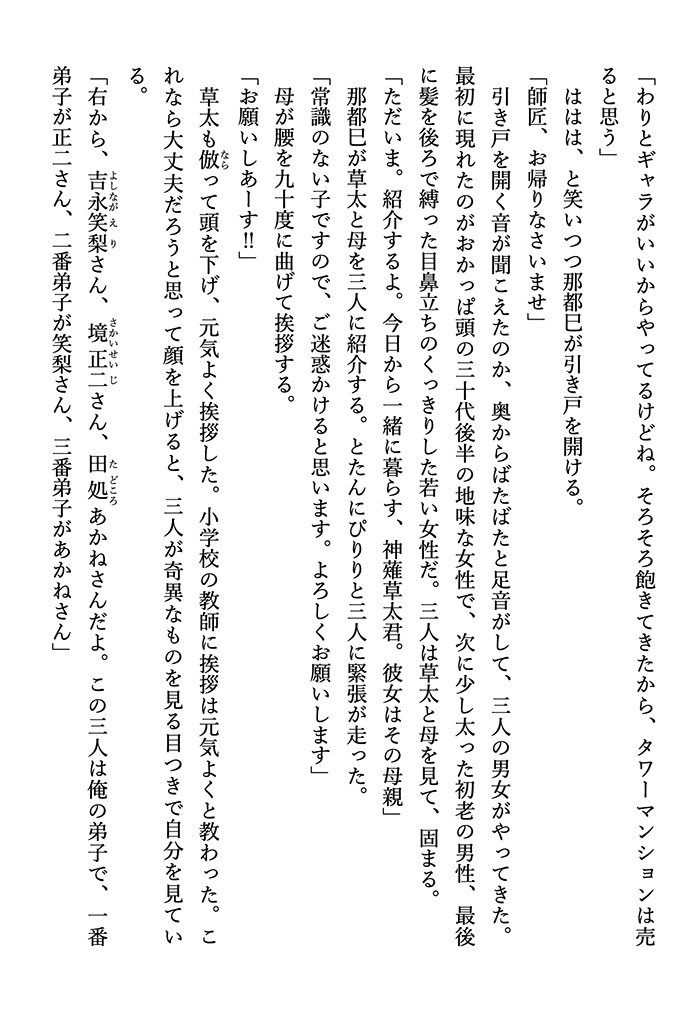 「わりとギャラがいいからやってるけどね。そろそろ飽きてきたから、タワーマンションは売
ると思う」
　ははは、と笑いつつ那都巳が引き戸を開ける。
「師匠、お帰りなさいませ」
　引き戸を開く音が聞こえたのか、奥からばたばたと足音がして、三人の男女がやってきた。
最初に現れたのがおかっぱ頭の三十代後半の地味な女性で、次に少し太った初老の男性、最後
に髪を後ろで縛った目鼻立ちのくっきりした若い女性だ。三人は草太と母を見て、固まる。
「ただいま。紹介するよ。今日から一緒に暮らす、神薙草太君。彼女はその母親」
　那都巳が草太と母を三人に紹介する。とたんにぴりりと三人に緊張が走った。
「常識のない子ですので、ご迷惑かけると思います。よろしくお願いします」
　母が腰を九十度に曲げて挨拶する。
「お願いしあーす!!」
　草太も倣って頭を下げ、元気よく挨拶した。小学校の教師に挨拶は元気よくと教わった。こ
れなら大丈夫だろうと思って顔を上げると、三人が奇異なものを見る目つきで自分を見てい
る。
「右から、吉永笑梨さん、境正二さん、田処あかねさんだよ。この三人は俺の弟子で、一番
弟子が正二さん、二番弟子が笑梨さん、三番弟子があかねさん」
なら
よしながえり
さかいせいじ
たどころ